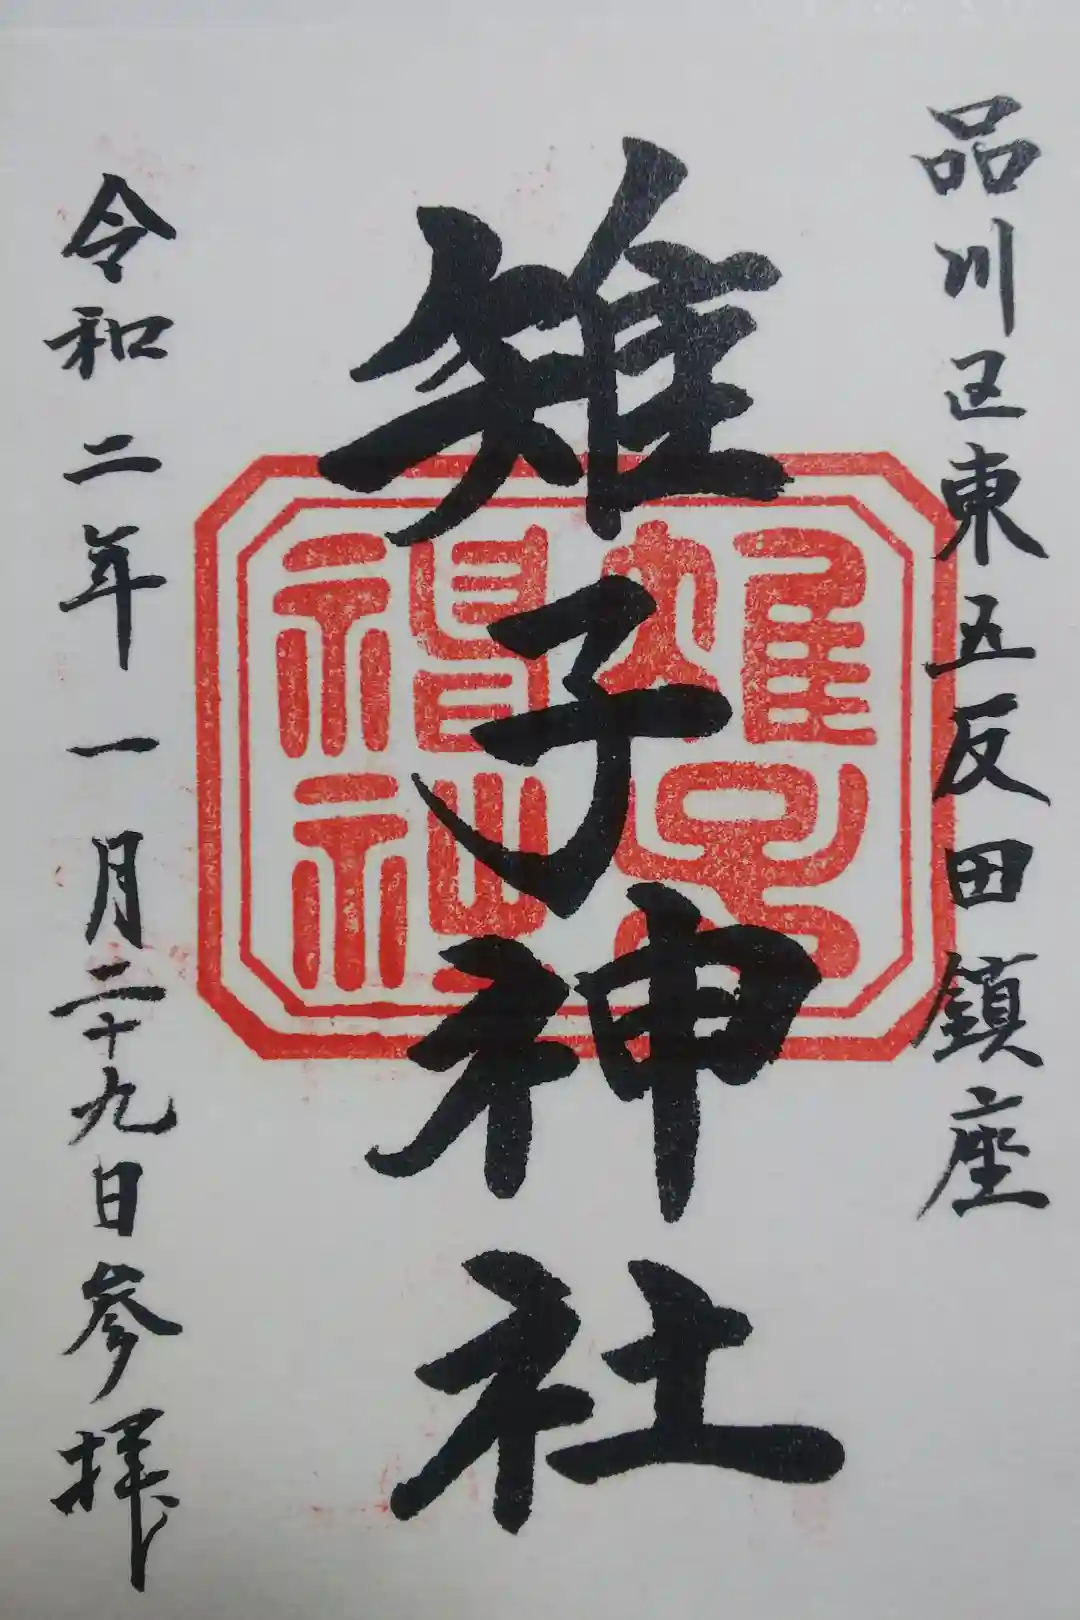 品川区東五反田鎮座
雉子神社
雉子神社
令和二年一月二十九日参拝